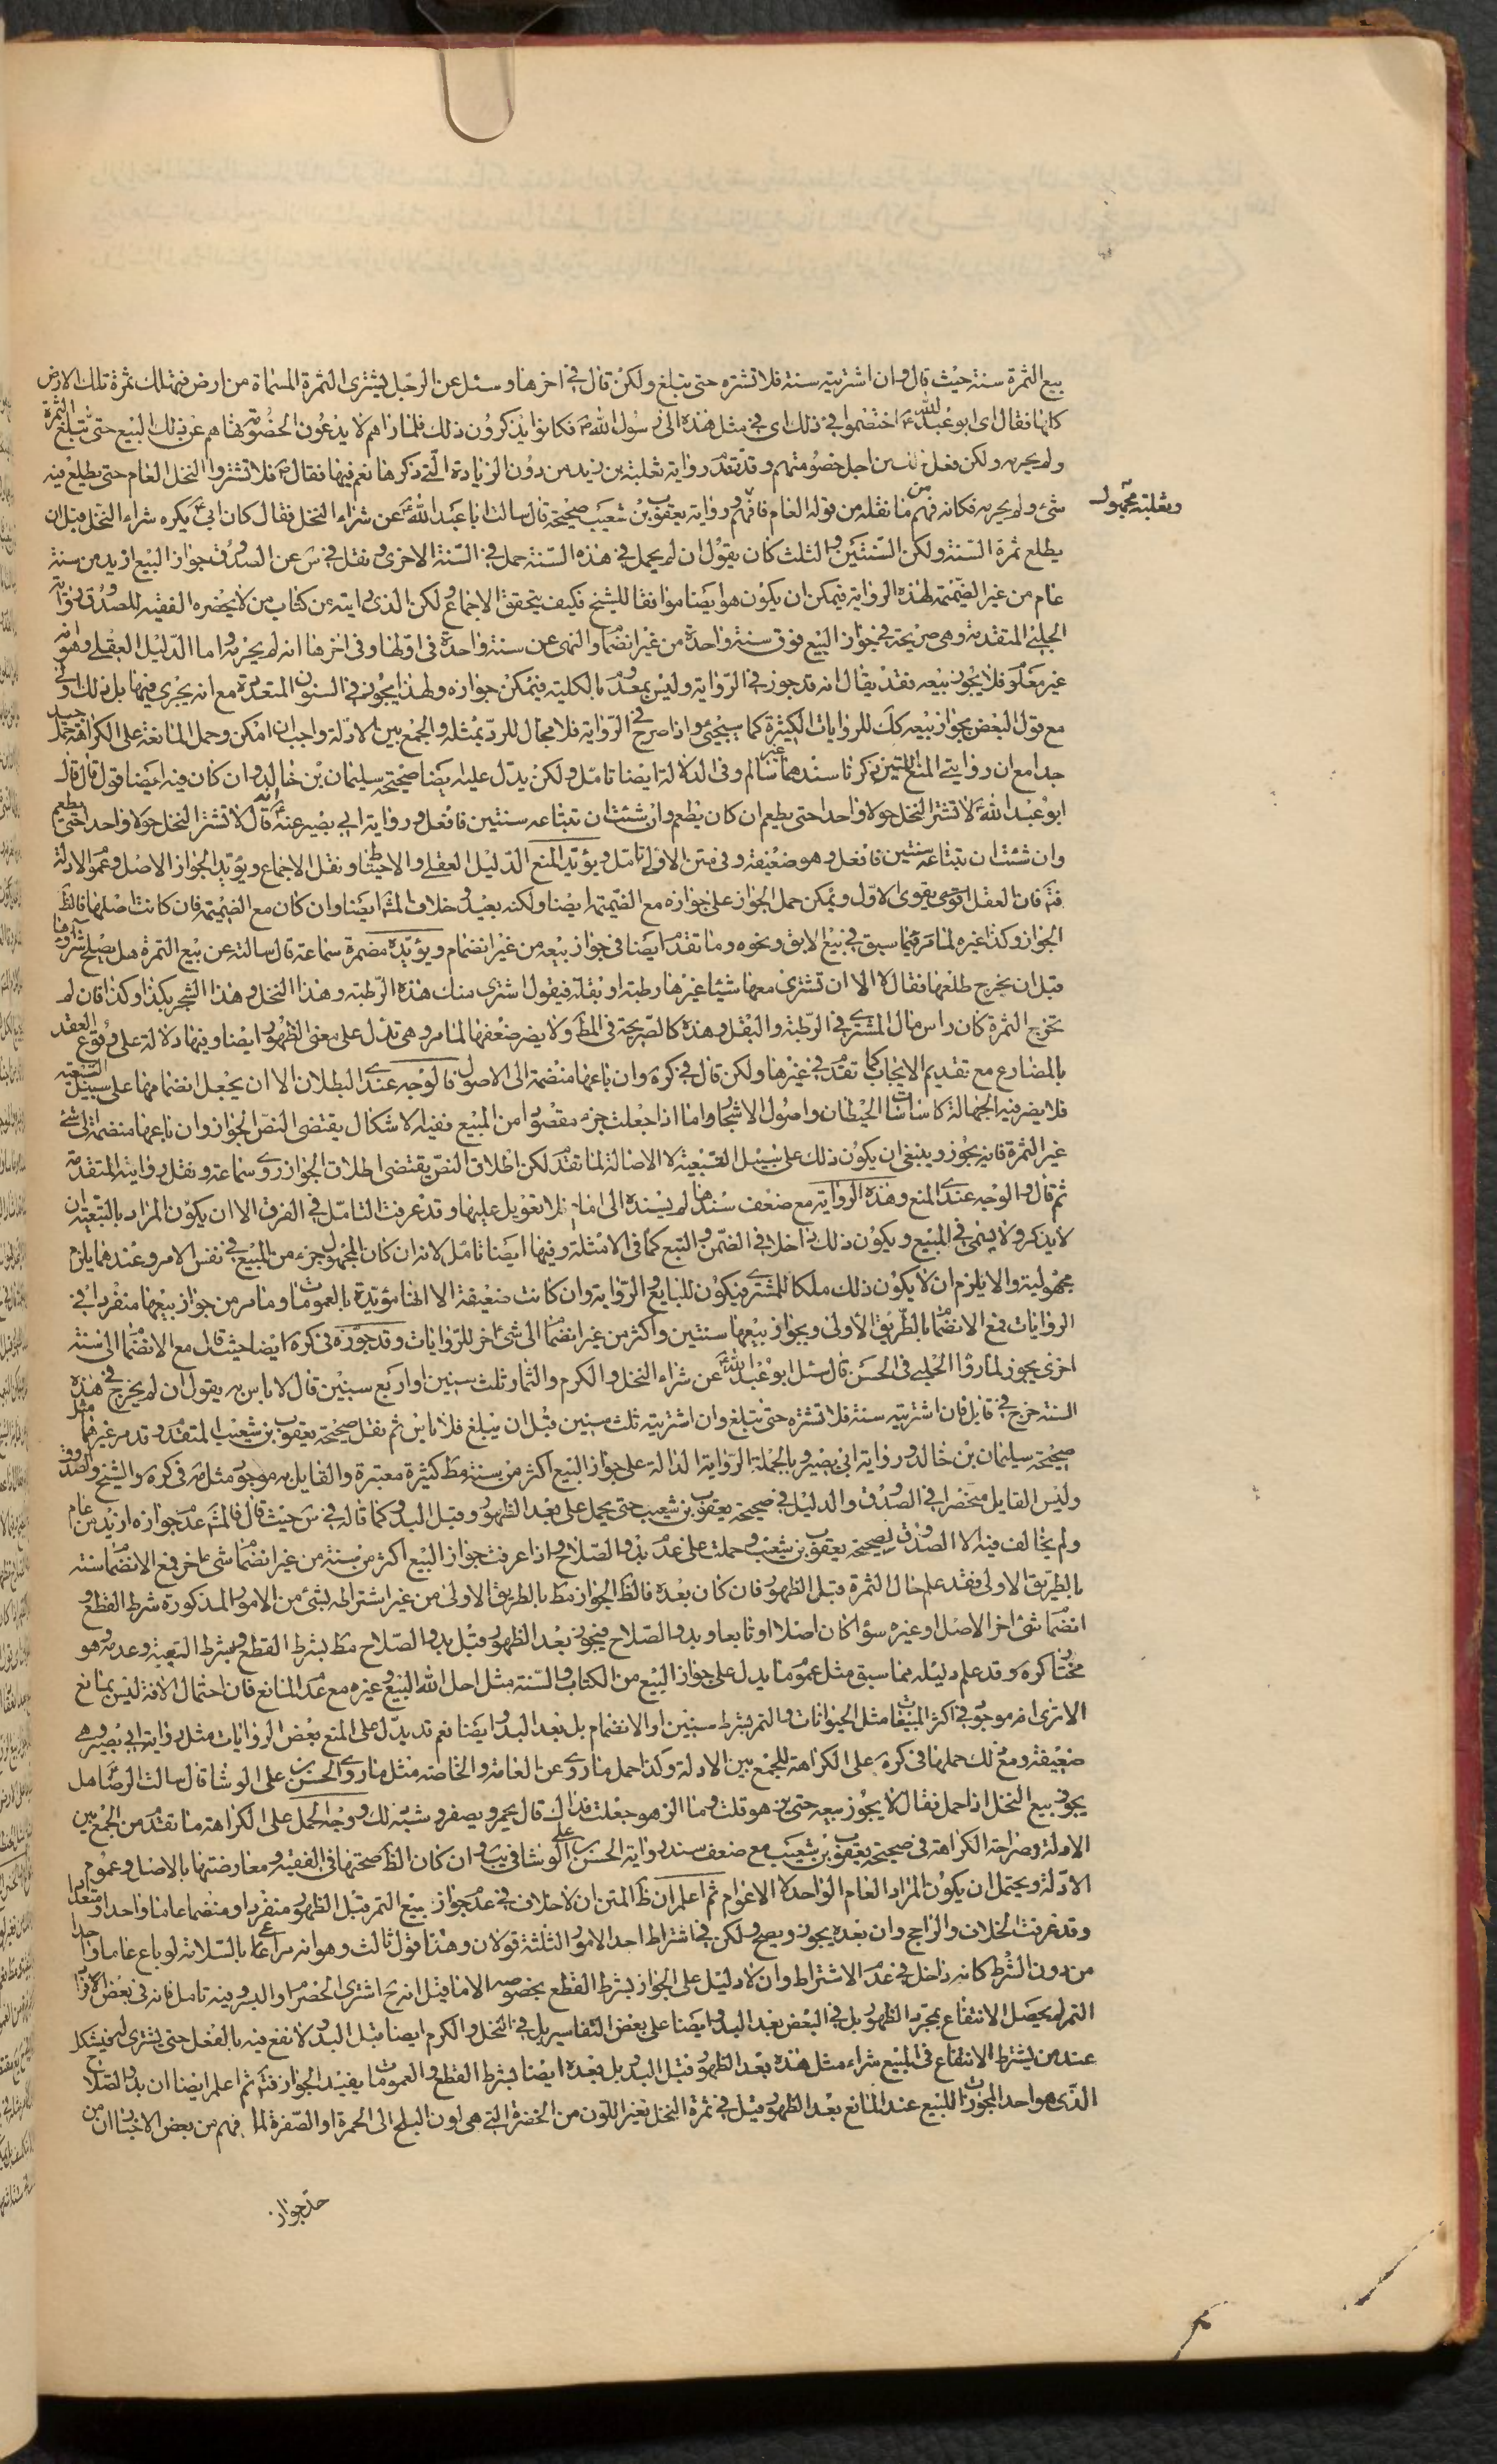 بيع الثمرة سنة حيث قال وان اشتريته سنة فلا تشتره حتى يبلغ ولكن قال في اخرها وسئل عن الرجل يشترى الثمرة المسماة من ارض فهلك ثمرة تلك الارض
كلها فقال اى ابو عبد الله ع اختصموا في ذلك اى في مثل هذه الى رسول الله ص فكانوا يذكرون ذلك فلما راهم لا يدعون الخصومة نهاهم عن ذلك البيع حتى تبلغ الثمرة
ولم يحرمه ولكن فعل ذلك من اجل خصومتهم وقد تقدم رواية ثعلبة بن زيد من دون الزيادة التى ذكرها نعم فيها فقال ص فلا تشتروا النخل العام حتى يطلع فيه
وثعلبة مجهول
شئ ولم يحرمه فكانه فهم من ما نقله من قوله العام فافهم ورواية يعقوب بن شعيب صحيحة قال سالت ابا عبد الله ع عن شراء النخل فقال كان ابى ع يكره شراء النخل قبل ان
يطلع ثمرة السنة ولكن السنتين والثلث كان يقول ان لم يحمل في هذه السنة حمل في السنة الاخرى ونقل في س عن الصدوق جواز البيع ازيد من سنة
عام من غير الضميمة لهذه الرواية فيمكن ان يكون هو ايضا موافقا للشيخ فكيف يتحقق الاجماع ولكن الذى رايته عن كتاب من لا يحضره الفقيه للصدوق رواية
الحلبي المتقدمة وهى صريحة في جواز البيع فوق سنة واحدة من غير انضمام والنهى عن سنة واحدة في اولها وفى اخرها انه لم يحرمه واما الدليل العقلى وهو انه
غير معلوم فلا يجوز بيعه فقد يقال انه قد جوز في الرواية وليس بمعدوم بالكلية فيمكن جوازه ولهذا يجوز في السنون المتعددة مع انه يجرى فيها بل ذلك اولى
مع قول البعض بجواز بيعه كك للروايات الكثيرة كما سيجئ واذا صرح في الرواية فلا مجال للرد بمثله والجمع بين الادلة واجب ان امكن وحمل المانعة على الكراهة حمل جيد
جدا مع ان روايتى المنع اللتين ذكرنا سندهما غير سالم وفى الدلالة ايضا تامل ولكن يدل عليه ايضا صحيحة سليمان بن خالد وان كان فيه ايضا قول قال قال
ابو عبد الله ع لا تشتر النخل حولا واحدا حتى يطعم ان كان يطعم وان شئت ان تبتاعه سنتين فافعل ورواية ابى بصير عنه ع انه قال لا تشتر النخل حولا واحدا حتى يطعم
وان شئت ان تبتاعه سنتين فافعل وهو ضعيفة وفى متن الاولى تامل ويؤيد المنع الدليل العقلى والاحتياط ونقل الاجماع ويؤيد الجواز الاصل وعموم الادلة
فتم فان العقل قوى يقوى الاول ويمكن حمل الجواز على جوازه مع الضميمة ايضا ولكنه بعيد وخلاف المشهور ايضا وان كان مع الضميمة فان كانت اصلها فالظ
الجواز وكذا غيره لما مر فيما سبق في بيع الابق ونحوه وما تقدم ايضا في جواز بيعه من غير انضمام ويؤيده مضمرة سماعة قال سالته عن بيع الثمرة هل يصلح شراؤها
قبل ان يخرج طلعها فقال لا الا ان تشترى معها شيئا غيرها رطبة او بقلة فيقول اشترى منك هذه الرطبة وهذا النخل وهذا الشجر بكذا وكذا فان لم
تخرج الثمرة كان راس مال المشترى في الرطبة والبقل وهذه كالصريحة في المط ولا يضر ضعفها لما مر وهى تدل على معنى الظهور ايضا وفيها دلالة على وقوع العقد
بالمضارع مع تقديم الايجاب كما تقدم في غيرها ولكن قال في كره وان باعها منضمة الى الاصول فالوجه عندى البطلان الا ان يجعل انضمامها على سبيل التبعية
فلا يضر فيه الجهالة كاساسات الحيطان واصول الاشجار واما اذا جعلت جزء مقصودا من المبيع ففيه الاشكال يقتضى النص الجواز وان باعها منضمة الى شئ
غير الثمرة فانه يجوز وينبغى ان يكون ذلك على سبيل التبعية لا الاصالة لما تقدم لكن اطلاق النص يقتضى اطلاق الجواز روى سماعة ونقل روايته المتقدمة
ثم قال والوجه عندى المنع وهذه الرواية مع ضعف سندها لم يسنده الى امام فلا تعويل عليها وقد عرفت التامل في الفرق الا ان يكون المراد بالتبعية ان
لا يذكر ولا يسمى في المبيع ويكون ذلك داخلا في الضمن والتبع كما في الامثلة وفيها ايضا تامل لانه ان كان المجهول جزء من المبيع في نفس الامر وعندهما يلزم
مجهولية والا يلزم ان لا يكون ذلك ملكا للمشترى فيكون للبايع والرواية وان كانت ضعيفة الا انها مؤيدة بالعمومات وما مر من جواز بيعها منفردا في
الروايات فمع الانضمام بالطريق الاولى ويجوز بيعها سنتين واكثر من غير انضمام الى شئ اخر للروايات وقد جوزه في كره ايضا حيث قال مع الانضمام الى سنة
اخرى يجوز لما رواه الحلبى في الحسن قال سئل ابو عبد الله ع عن شراء النخل والكرم والثمار ثلث سنين او اربع سنين قال لا باس به يقول ان لم يخرج في هذه
السنة خرج في قابل فان اشتريته سنة فلا تشتره حتى تبلغ وان اشتريته ثلث سنين قبل ان يبلغ فلا باس ثم نقل صحيحة يعقوب بن شعيب المتقدمة وقد مر غيرها مثل
صحيحة سليمان بن خالد ورواية ابى بصير وبالجملة الرواية الدالة على جواز البيع اكثر من سنة مط كثيرة معتبرة والقايل به موجود مثل مه في كره والشيخ والصدوق
وليس القايل منحصرا في الصدوق والدليل في صحيحة يعقوب بن شعيب حتى يحمل على بعد الظهور وقبل البدو كما قاله في س حيث قال فالمشهور عدم جوازه ازيد من عام
ولم يخالف فيه الا الصدوق لصحيحة يعقوب بن شعيب وحملت على عدم بدو الصلاح واذا عرفت جواز البيع اكثر من سنة من غير انضمام شئ اخر فمع الانضمام سنة
بالطريق الاولى فقد علم حال الثمرة قبل الظهور فان كان بعده فالظ الجواز مط بالطريق الاولى من غير اشتراطه بشئ من الامور المذكورة شرط القطع و
انضمام شئ اخر الاصل او غيره سواء كان اصلا او تابعا وبدو الصلاح فيجوز بعد الظهور قبل بدو الصلاح مط بشرط القطع وبشرط التبعية وعدمه وهو
مختار كره وقد علم دليله مما سبق مثل عموم ما يدل على جواز البيع من الكتاب والسنة مثل احل الله البيع وغيره مع عدم المانع فان احتمال الافة ليس بمانع
الا ترى انه موجود في اكثر المبيعات مثل الحيوانات والثمر بشرط سنين او الانضمام بل بعد البدو ايضا نعم قد يدل على المنع بعض الروايات مثل رواية ابى بصير وهى
ضعيفة ومع ذلك حملها في كره على الكراهة للجمع بين الادلة وكذا حمل ما روى عن العامة والخاصة مثل ما روى الحسن بن على الوشا قال سالت الرضا ع هل
يجوز بيع النخل اذا حمل فقال لا يجوز بيعه حتى يزهو قلت وما الزهو جعلت فداك قال يحمر ويصفر وشبه ذلك ووجه الحمل على الكراهة ما تقدم من الجمع بين
الادلة وصراحة الكراهة في صحيحة يعقوب بن شعيب مع ضعف سند رواية الحسن بن على الوشا في يب وان كان الظ صحتها في الفقيه ومعارضتها بالاصل وعموم
الادلة ويحتمل ان يكون المراد العام الواحد لا الاعوام ثم اعلم ان ظ المتن ان لا خلاف في عدم جواز بيع الثمر قبل الظهور منفردا ومنضما عاما واحدا ومتعددا
وقد عرفت الخلاف والراجح وان بعده يجوز ويصح ولكن في اشتراط احد الامور الثلثة قولان وهنا قول ثالث وهو انه مراعى بالسلامة لو باع عاما واحدا
من دون الشرط كانه داخل في عدم الاشتراط وان لا دليل على الجواز بشرط القطع بخصوصه الا ما قيل انه ح اشترى الحصرم والبسر وفيه تامل فانه في بعض الافراد
الثمر لم يحصل الانتفاع بمجرد الظهور بل في البعض بعد البدو ايضا على بعض التفاسير بل في النخل والكرم ايضا قبل البدو لا نفع فيه بالفعل حتى يشترى له فيشكل
عند من يشترط الانتفاع في المبيع شراء مثل هذه بعد الظهور قبل البدو بل بعده ايضا بشرط القطع والعمومات يفيد الجواز فتم ثم اعلم ايضا ان بدو الصلاح
الذى هو احد المجوزات للبيع عند المانع بعد الظهور قيل في ثمرة النخل تغير اللون من الخضرة التى هى لون البلح الى الحمرة او الصفرة لما فهم من بعض الاخبار ان من
حد جواز